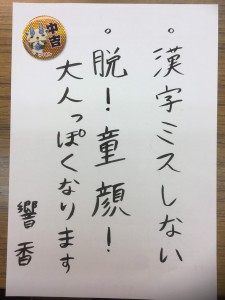 ・漢字ミスしない
・脱！童顔！
大人っぽくなります
響香
中吉